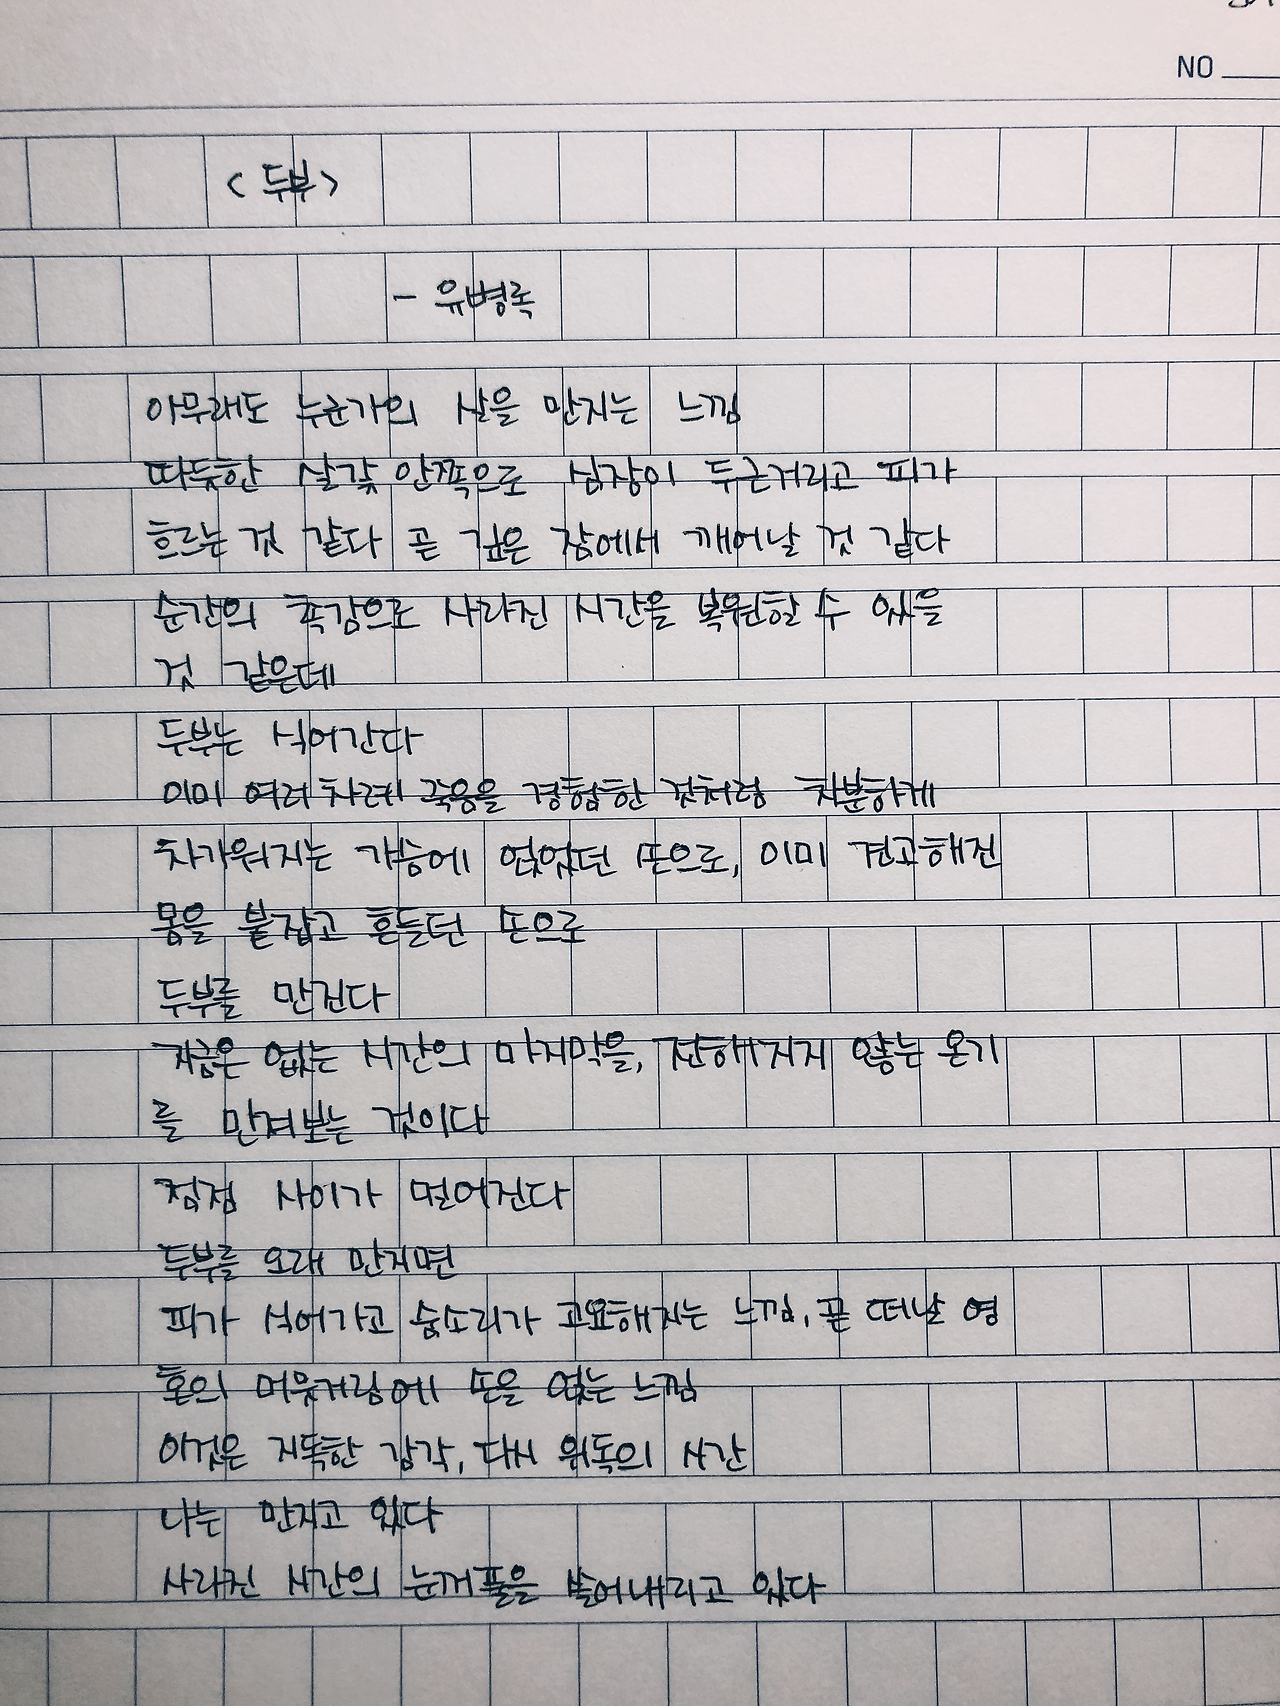 NO
<두부>
- 유병록
아무래도 누군가의 살을 만지는 느낌
따듯한 살갗 안쪽으로 심장이 두근거리고 피가
흐르는 것 같다 곧 깊은 잠에서 깨어날 것 같다
순간의 촉감으로 사라진 시간을 복원할 수 있을
것 같은데
두부는 식어간다
이미 여러 차례 죽음을 경험한 것처럼 차분하게
차가워지는 가슴에 얹었던 손으로, 이미 견고해진
몸을 붙잡고 흔들던 손으로
두부를 만진다
지금은 없는 시간의 마지막을, 전해지지 않는 온기
를 만져보는 것이다
점점 사이가 멀어진다
두부를 오래 만지면
피가 식어가고 숨소리가 고요해지는 느낌, 곧 떠날 영
혼의 머뭇거림에 손을 얹는 느낌
이것은 지독한 감각, 다시 위독의 시간
나는 만지고 있다
사라진 시간의 눈꺼풀을 쓸어내리고 있다